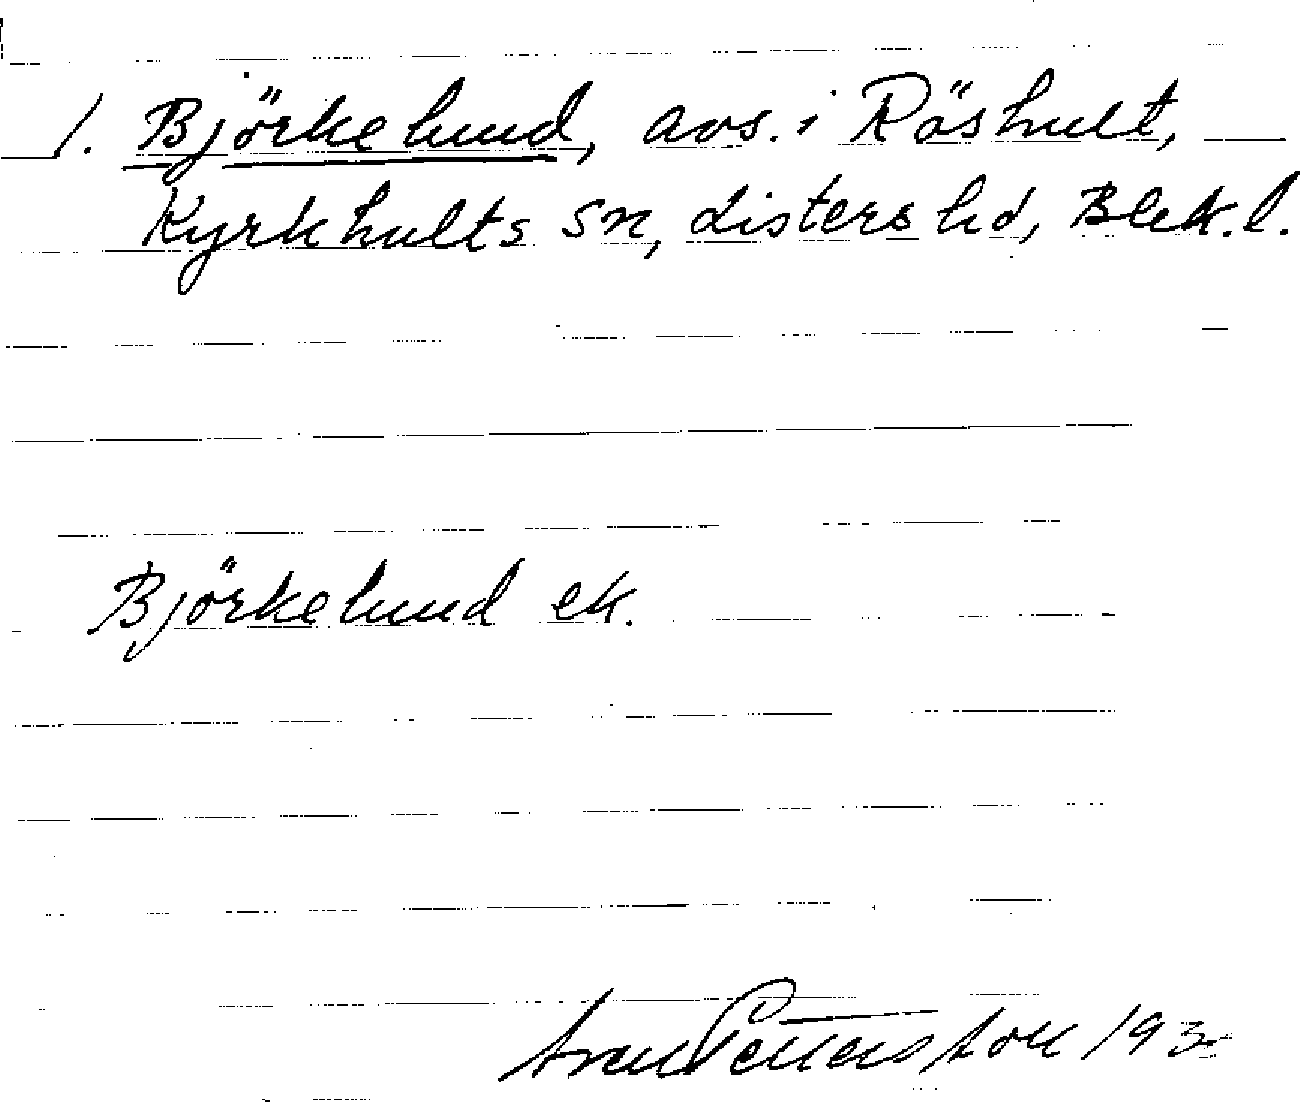 1. Björkelund, avs. i Röshult,
Kyrkhults sn, Listers hd, Blek. l.
Björkelund ek.
Pettersson 193